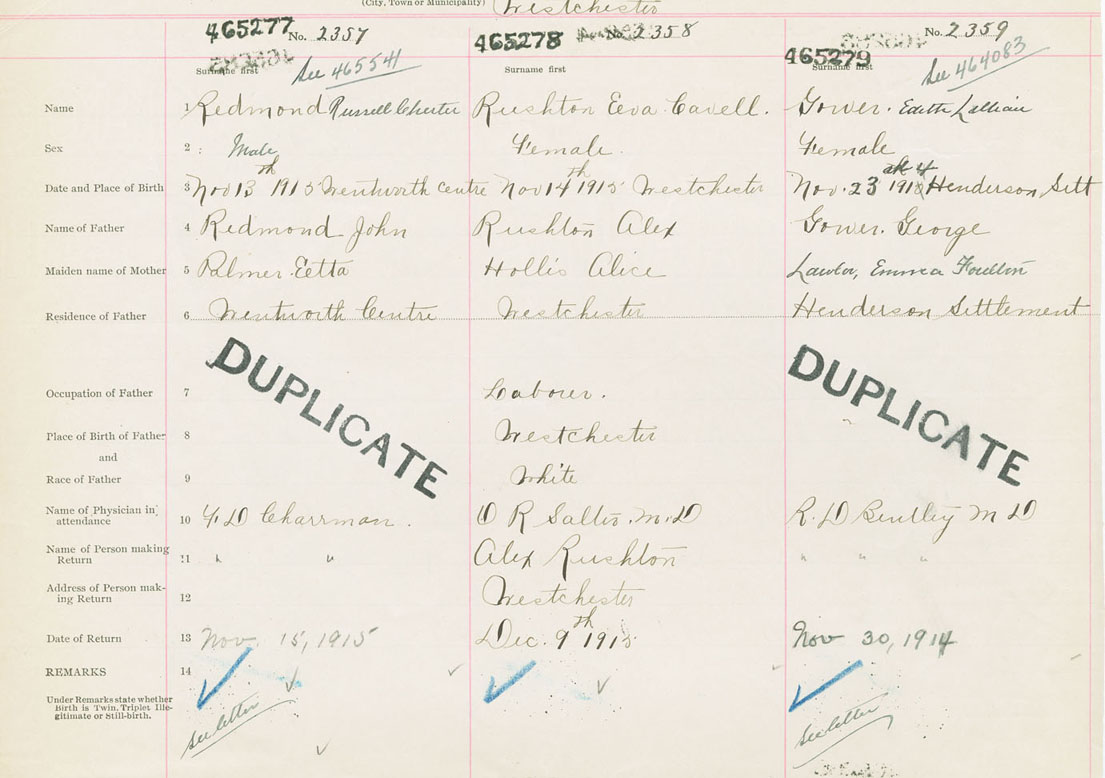 (City, Town or Municipality) Westchester
465277 No. 2357 465278 No. 2358 No. 2359
See 465541 465279 See 464083
Surname first Surname first Surname first
Name 1 Redmond Russell Chester Rushton Eeva Cavell. Gower. Edith Lillian
Sex 2 : Male Female. Female
Date and Place of Birth 3 Nov 13th 1915 Wentworth Centre Nov 14th 1915 Westchester Nov. 23 1914 Henderson Sett
Name of Father 4 Redmond John Rushton Alex Gower. George
Maiden name of Mother 5 Palmer Eetta Hollis Alice Lawlor, Emma
Residence of Father 6 Wentworth Centre Westchester Henderson Settlement
DUPLICATE DUPLICATE
Occupation of Father 7 Labourer.
Place of Birth of Father 8 Westchester
and
Race of Father 9 White
Name of Physician in attendance 10 F D Charrman. D R Salter. M.D R. D Bentley M D
Name of Person making Return 11 " " Alex Rushton " " "
Address of Person making Return 12 Westchester
Date of Return 13 Nov. 15, 1915 Dec. 9th 1915 Nov 30, 1914
REMARKS 14
Under Remarks state whether
Birth is Twin, Triplet Ille-
gitimate or Still-birth.
See letter See letter